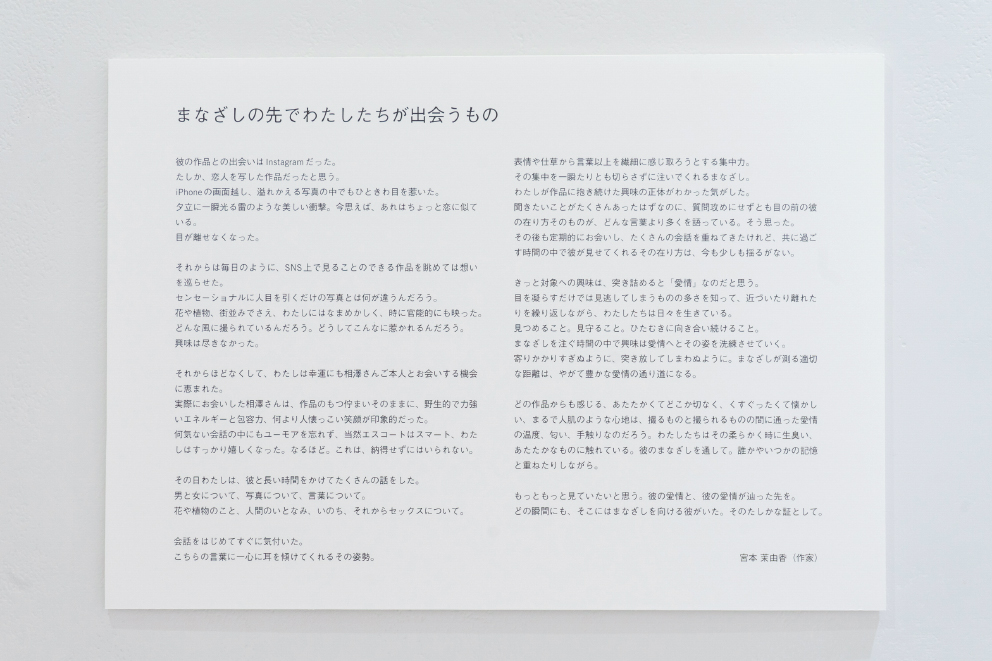 まなざしの先でわたしたちが出会うもの
彼の作品との出会いは Instagram だった。
たしか、恋人を写した作品だったと思う。
iPhone の画面越し、溢れかえる写真の中でもひときわ目を惹いた。
夕立に一瞬光る雷のような美しい衝撃。今思えば、あれはちょっと恋に似て
いる。
目が離せなくなった。
それからは毎日のように、SNS 上で見ることのできる作品を眺めては想い
を巡らせた。
センセーショナルに人目を引くだけの写真とは何が違うんだろう。
花や植物、街並みでさえ、わたしにはなまめかしく、時に官能的にも映った。
どんな風に撮られているんだろう。どうしてこんなに惹かれるんだろう。
興味は尽きなかった。
それからほどなくして、わたしは幸運にも相澤さんご本人とお会いする機会
に恵まれた。
実際にお会いした相澤さんは、作品のもつ佇まいそのままに、野生的で力強
いエネルギーと包容力、何より人懐っこい笑顔が印象的だった。
何気ない会話の中にもユーモアを忘れず、当然エスコートはスマート、わた
しはすっかり嬉しくなった。なるほど。これは、納得せずにはいられない。
その日わたしは、彼と長い時間をかけてたくさんの話をした。
男と女について、写真について、言葉について。
花や植物のこと、人間のいとなみ、いのち、それからセックスについて。
会話をはじめてすぐに気付いた。
こちらの言葉に一心に耳を傾けてくれるその姿勢。
表情や仕草から言葉以上を繊細に感じ取ろうとする集中力。
その集中を一瞬たりとも切らさずに注いでくれるまなざし。
わたしが作品に抱き続けた興味の正体がわかった気がした。
聞きたいことがたくさんあったはずなのに、質問攻めにせずとも目の前の彼
の在り方そのものが、どんな言葉より多くを語っている。そう思った。
その後も定期的にお会いし、たくさんの会話を重ねてきたけれど、共に過ご
す時間の中で彼が見せてくれるその在り方は、今も少しも揺るがない。
きっと対象への興味は、突き詰めると「愛情」なのだと思う。
目を凝らすだけでは見逃してしまうものの多さを知って、近づいたり離れた
りを繰り返しながら、わたしたちは日々を生きている。
見つめること。見守ること。ひたむきに向き合い続けること。
まなざしを注ぐ時間の中で興味は愛情へとその姿を洗練させていく。
寄りかかりすぎぬように、突き放してしまわぬように。まなざしが測る適切
な距離は、やがて豊かな愛情の通り道になる。
どの作品からも感じる、あたたかくてどこか切なく、くすぐったくて懐かし
い、まるで人肌のような心地は、撮るものと撮られるものの間に通った愛情
の温度、匂い、手触りなのだろう。わたしたちはその柔らかく時に生臭い、
あたたかなものに触れている。彼のまなざしを通して。誰かやいつかの記憶
と重ねたりしながら。
もっともっと見ていたいと思う。彼の愛情と、彼の愛情が辿った先を。
どの瞬間にも、そこにはまなざしを向ける彼がいた。そのたしかな証として。
宮本 茉由香（作家）